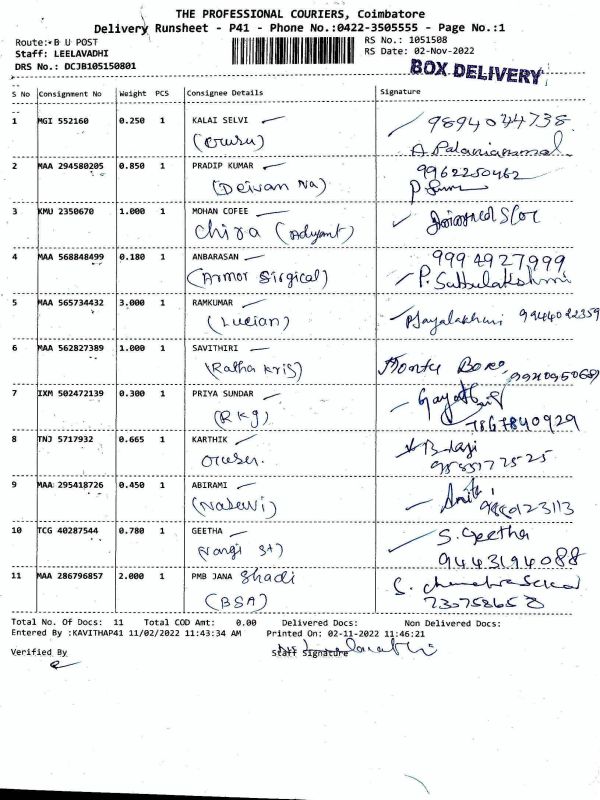 THE PROFESSIONAL COURIERS, Coimbatore
Delivery Runsheet - P41 - Phone No.:0422-3505555 - Page No.:1
Route: B U POST
RS No.: 1051508
Staff: LEELAVADHI
RS Date: 02-Nov-2022
DRS No.: DCJB105150801
BOX DELIVERY
S No Consignment No Weight PCS Consignee Details Signature
1 MGI 552160 0.250 1 KALAI SELVI 9894044738
A. Palaniammal
2 MAA 294580205 0.850 1 PRADIP KUMAR 9962250462
(Deivan Na)
3 KMU 2350670 1.000 1 MOHAN COFEE
Chira (Adyant)
4 MAA 568848499 0.180 1 ANBARASAN 9994927999
(Armor Sirgical) P. Subbulakshmi
5 MAA 565734432 3.000 1 RAMKUMAR
(Lucian) 9944022359
6 MAA 562827389 1.000 1 SAVITHIRI
(Ratha Kris)
7 IXM 502472139 0.300 1 PRIYA SUNDAR
(RKg) 7867840929
8 TNJ 5717932 0.665 1 KARTHIK
9 MAA 295418726 0.450 1 ABIRAMI
10 TCG 40287544 0.780 1 GEETHA S. Geetha
9443194088
11 MAA 286796857 2.000 1 PMB JANA Shadi
(BSA)
Total No. Of Docs: 11 Total COD Amt: 0.00 Delivered Docs: Non Delivered Docs:
Entered By :KAVITHAP41 11/02/2022 11:43:34 AM Printed On: 02-11-2022 11:46:21
Verified By Staff Signature